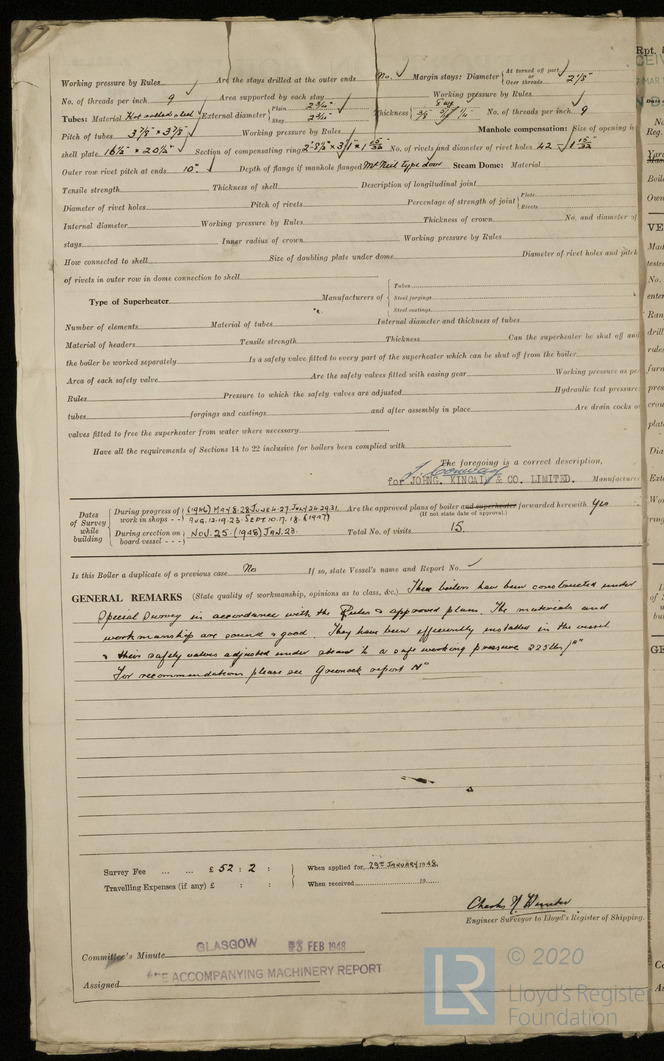 Working pressure by Rules Are the stays drilled at the outer ends No. Margin stays: Diameter { At turned off part or Over threads
No. of threads per inch 9 Area supported by each stay Working pressure by Rules
Tubes: Material Hot rolled steel External diameter { Plain 2 3/4" Stay 2 3/4" Thickness { No. of threads per inch 9
Pitch of tubes 3 7/8" × 3 7/8" Working pressure by Rules Manhole compensation: Size of opening in
shell plate 16 1/2" × 20 1/2" Section of compensating ring No. of rivets and diameter of rivet holes 42 - 1 15/32
Outer row rivet pitch at ends 10" Depth of flange if manhole flanged McNeil type door Steam Dome: Material
Tensile strength Thickness of shell Description of longitudinal joint
Diameter of rivet holes Pitch of rivets Percentage of strength of joint { Plate Rivets
Internal diameter Working pressure by Rules Thickness of crown No. and diameter of
stays Inner radius of crown Working pressure by Rules
How connected to shell Size of doubling plate under dome Diameter of rivet holes and pitch
of rivets in outer row in dome connection to shell
Type of Superheater Manufacturers of { Tubes Steel forgings Steel castings
Number of elements Material of tubes Internal diameter and thickness of tubes
Material of headers Tensile strength Thickness Can the superheater be shut off and
the boiler be worked separately Is a safety valve fitted to every part of the superheater which can be shut off from the boiler
Area of each safety valve Are the safety valves fitted with easing gear Working pressure as per
Rules Pressure to which the safety valves are adjusted Hydraulic test pressure
tubes forgings and castings and after assembly in place Are drain cocks or
valves fitted to free the superheater from water where necessary
Have all the requirements of Sections 14 to 22 inclusive for boilers been complied with
The foregoing is a correct description,
for JOHN G. KINCAID & CO. LIMITED. Manufacturer
Dates of Survey while building { During progress of work in shops - - } (1946) MAY 8.28. JUNE 4.27. JULY 24.29.31. AUG. 12.19.23. SEPT. 10.17.18. (1947)
{ During erection on board vessel - - - } NOV. 25. (1948) JAN. 23.
Are the approved plans of boiler and superheater forwarded herewith Yes
(If not state date of approval.)
Total No. of visits 15.
Is this Boiler a duplicate of a previous case No If so, state Vessel's name and Report No.
GENERAL REMARKS (State quality of workmanship, opinions as to class, &c.) These boilers have been constructed under
Special Survey in accordance with the Rules & approved plans. The materials and
workmanship are sound & good. They have been efficiently installed in the vessel
& their safety valves adjusted under steam to a safe working pressure 225 lbs/□"
For recommendations please see Greenock report No
Survey Fee ... ... £ 52 : 2 : When applied for, 29TH JANUARY 1948.
Travelling Expenses (if any) £ : : When received 19
Engineer Surveyor to Lloyd's Register of Shipping.
Committee's Minute GLASGOW FEB 1948
Assigned SEE ACCOMPANYING MACHINERY REPORT
© 2020
LR
Lloyd's Register
Foundation